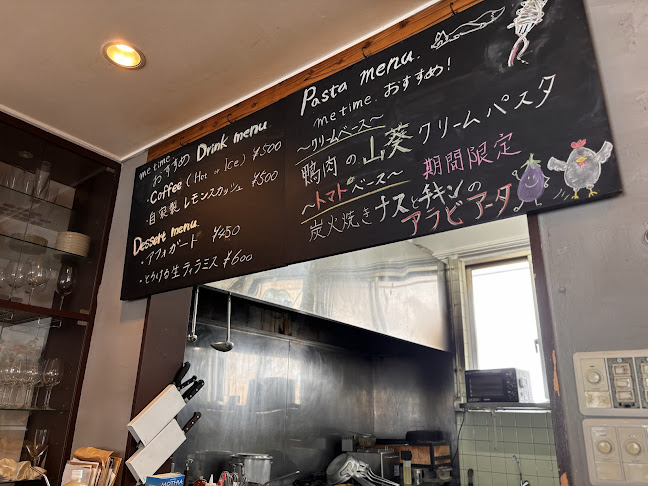 me time
おすすめ Drink menu
・Coffee (Hot or Ice) ¥500
・自家製 レモンスカッシュ ¥500
Dessert menu
・アフォガード ¥450
・とろける生ティラミス ¥600
Pasta menu.
me time. おすすめ!
〜クリームベース〜
鴨肉の山葵クリームパスタ
〜トマトベース〜 期間限定
炭火焼きナスとチキンの
アラビアータ